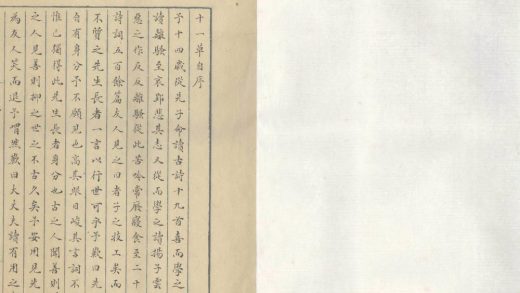 十一草自序
予十四歲從先子命讀古詩十九首喜而學之
讀離騷至哀郢悲其志又從而學之讀揚子雲
惡之作反反離騷從此苦吟常廢寢食至二十
詩詞五百餘篇友人見之曰耆子之技工矣而
不質之先生長者一言以行世可乎予歎曰先
自有身分予不願見也高其眼目峻其言詞不
惟已獨得此先生長者身分也古之人聞善則
之人見善則抑之世之不古久矣予安用見先
為友人笑而退予喟然歎曰大丈夫讀有用之